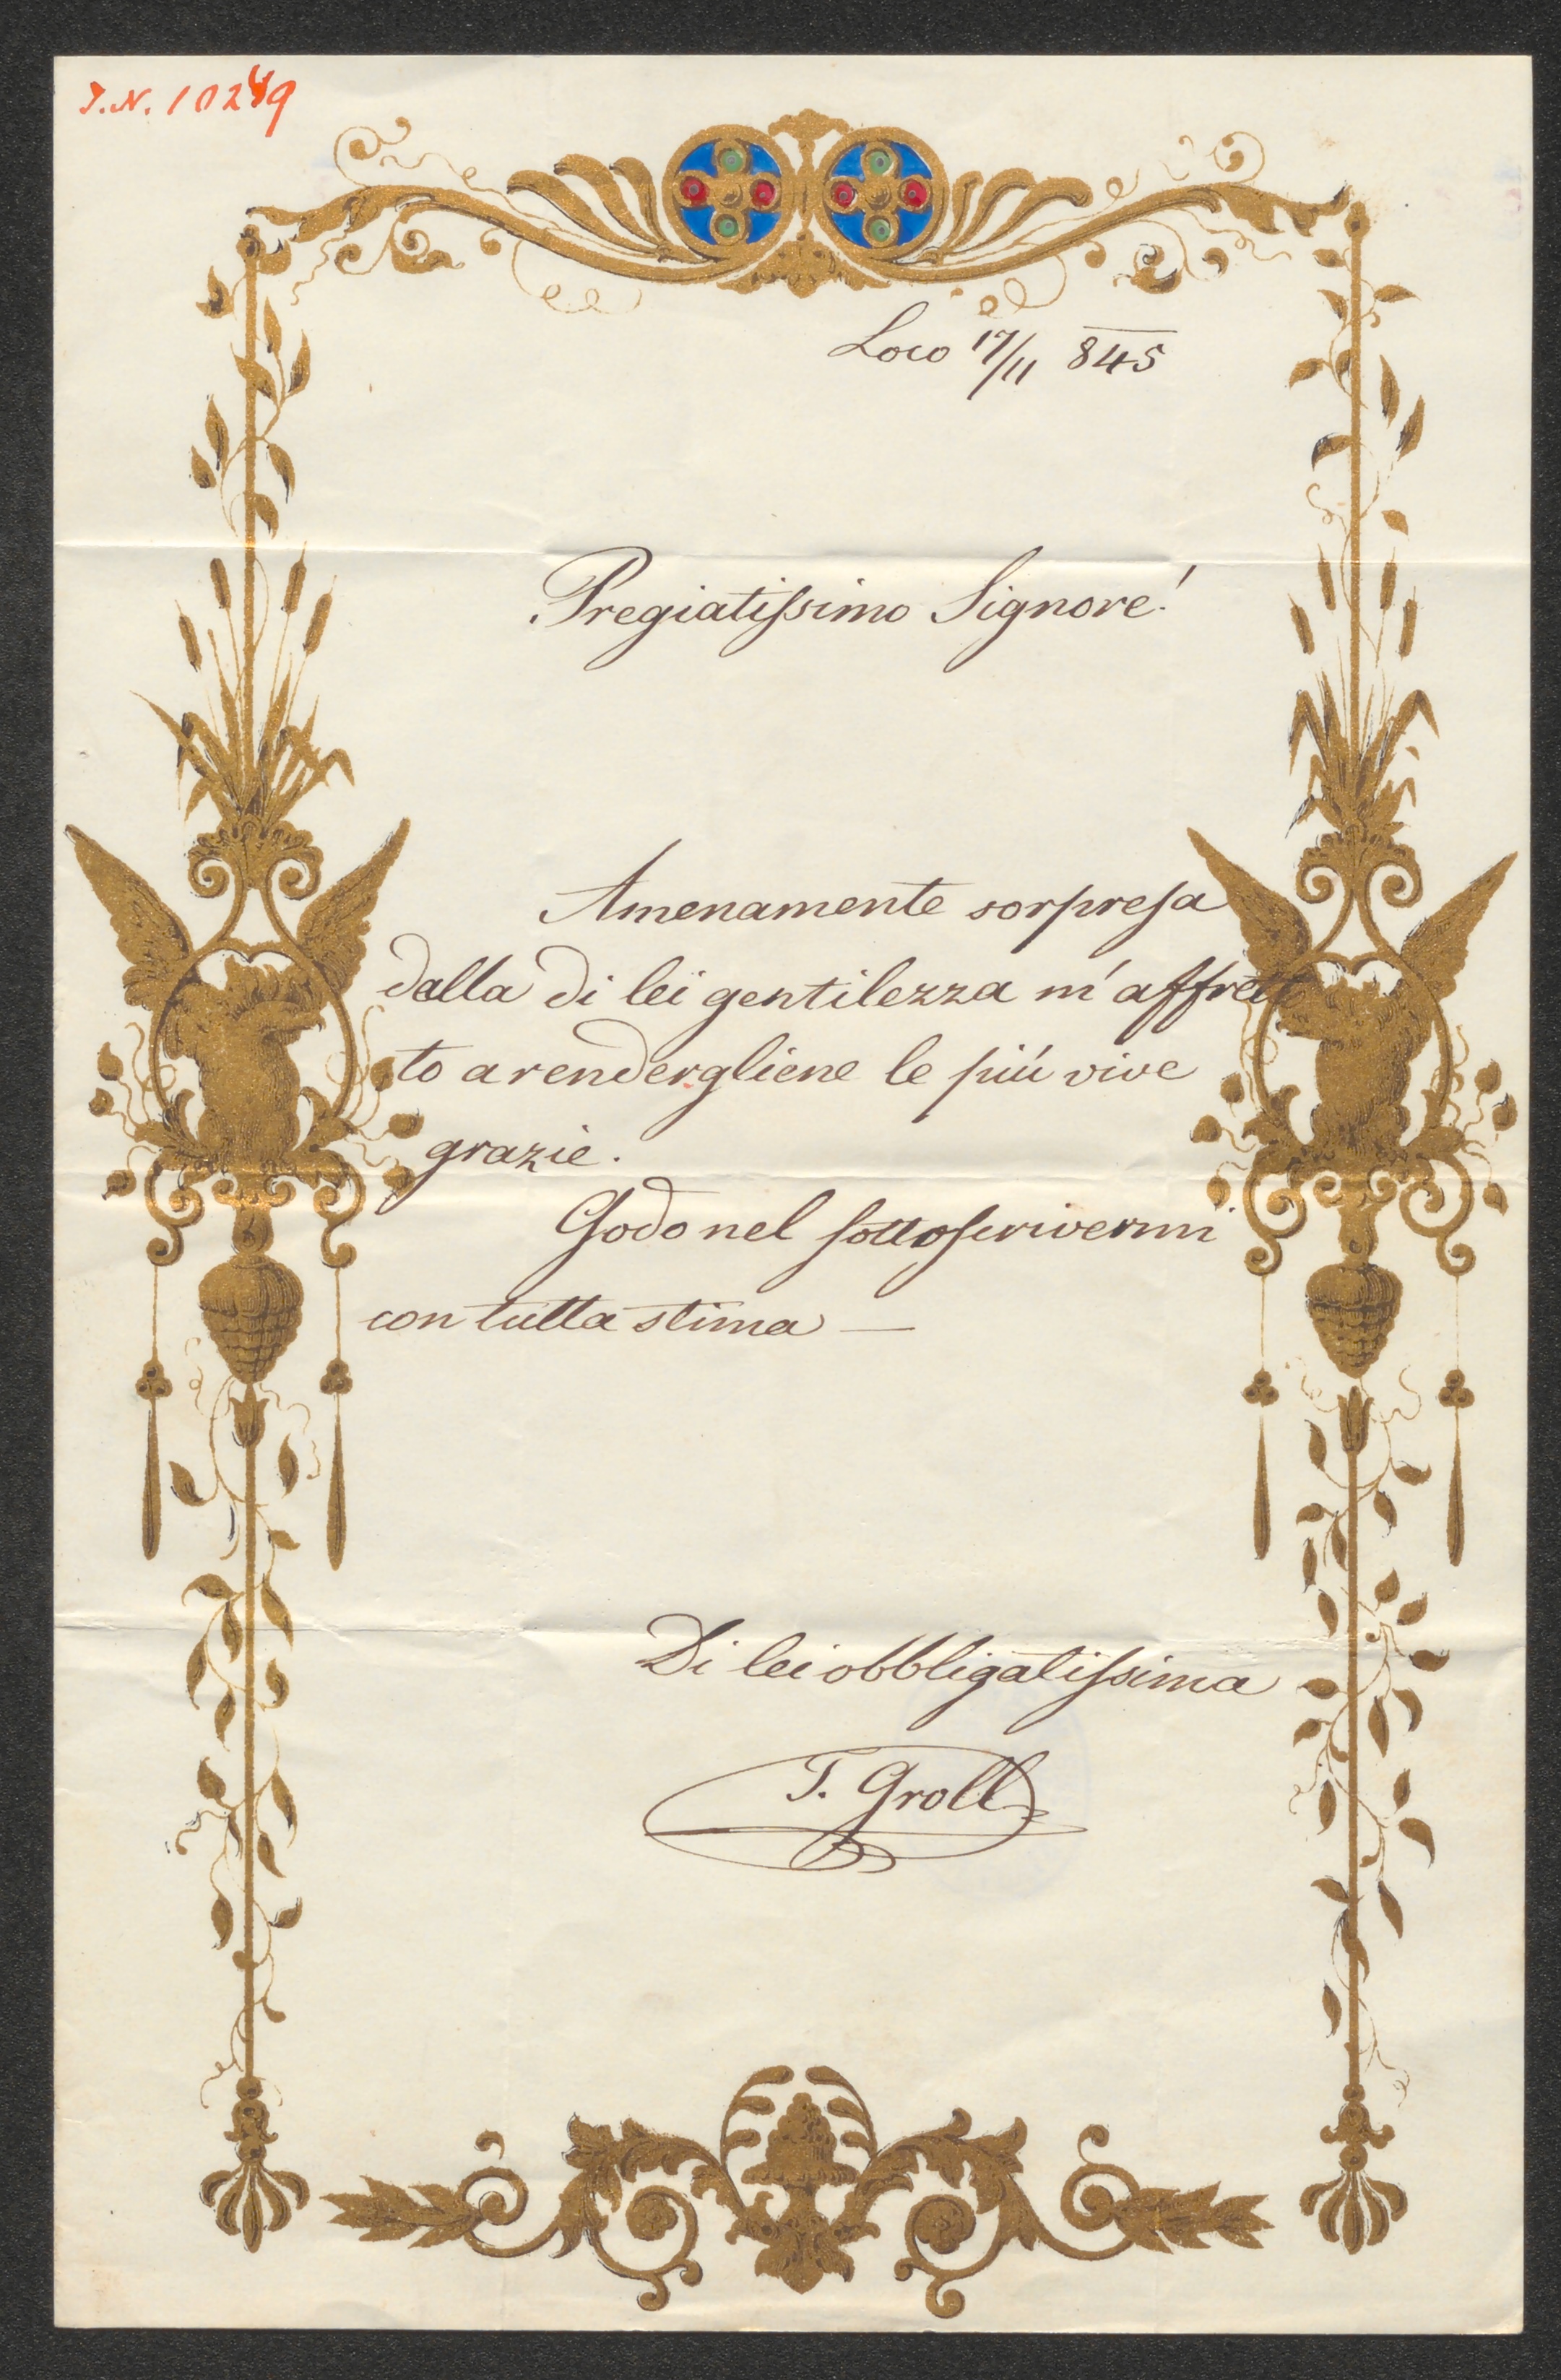 J.N. 10249
Loco 17/11 845
Pregiatiſsimo Signore!
Amenamente sorpreſa
dalla di lei gentilezza m'affret
to a rendergliene le più vive
grazie.
Godo nel ſottoſcrivermi
con tutta stima —
Di lei obbligatiſsima
T. Groll